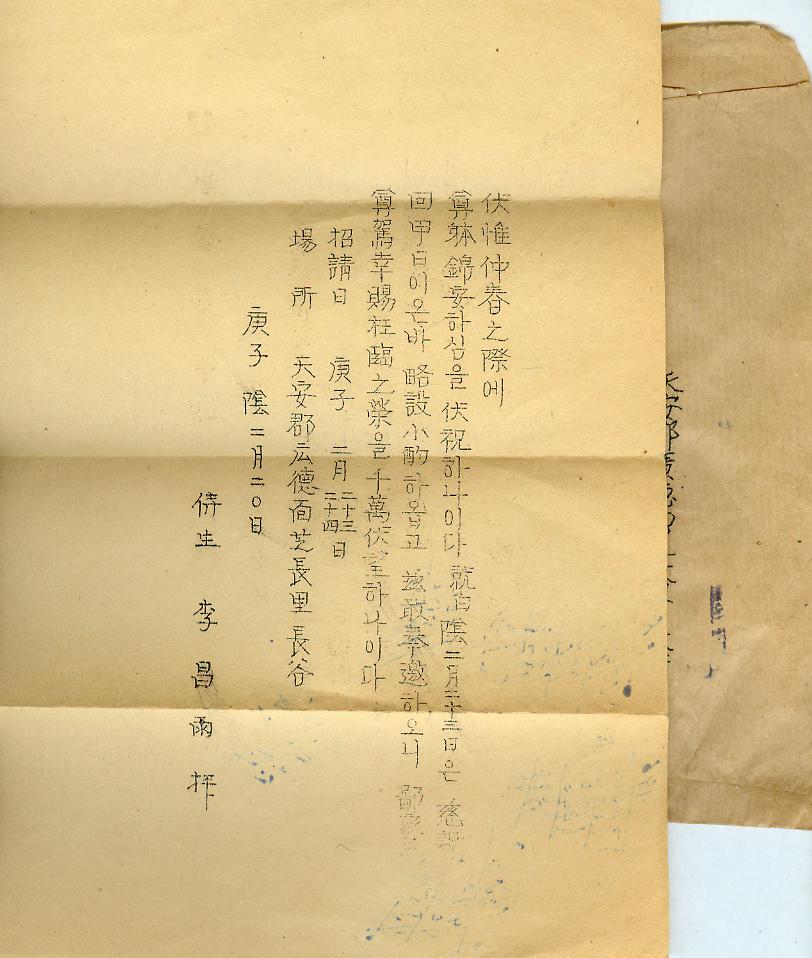 伏惟 仲春之際에
尊體 錦安하심을 伏祝하나이다 就白 陰二月二十三日은 慈親
回甲日이온바 略設小酌하옵고 玆敢奉邀하오니
尊駕幸賜枉臨之榮을 千萬伏望하나이다
招請日 庚子 二月 二十三 二十四 日
場所 天安郡広德面芝長里長谷
庚子 陰二月二〇日
侍生 李昌雨 拜